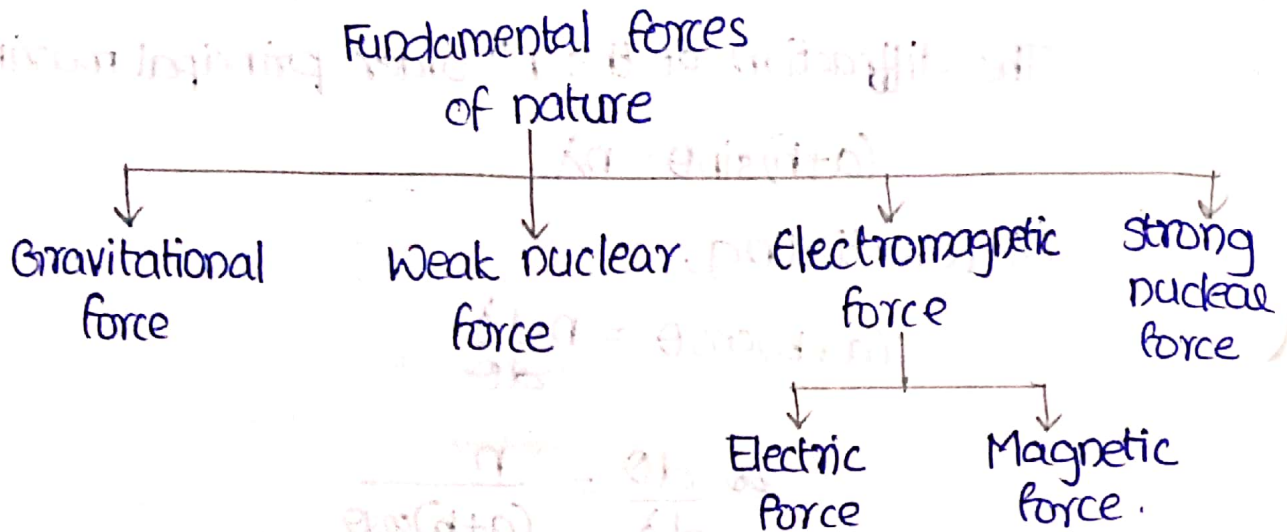 Fundamental forces
of nature
Gravitational
force
Weak nuclear
force
Electromagnetic
force
strong
nuclear
force
Electric
force
Magnetic
force.